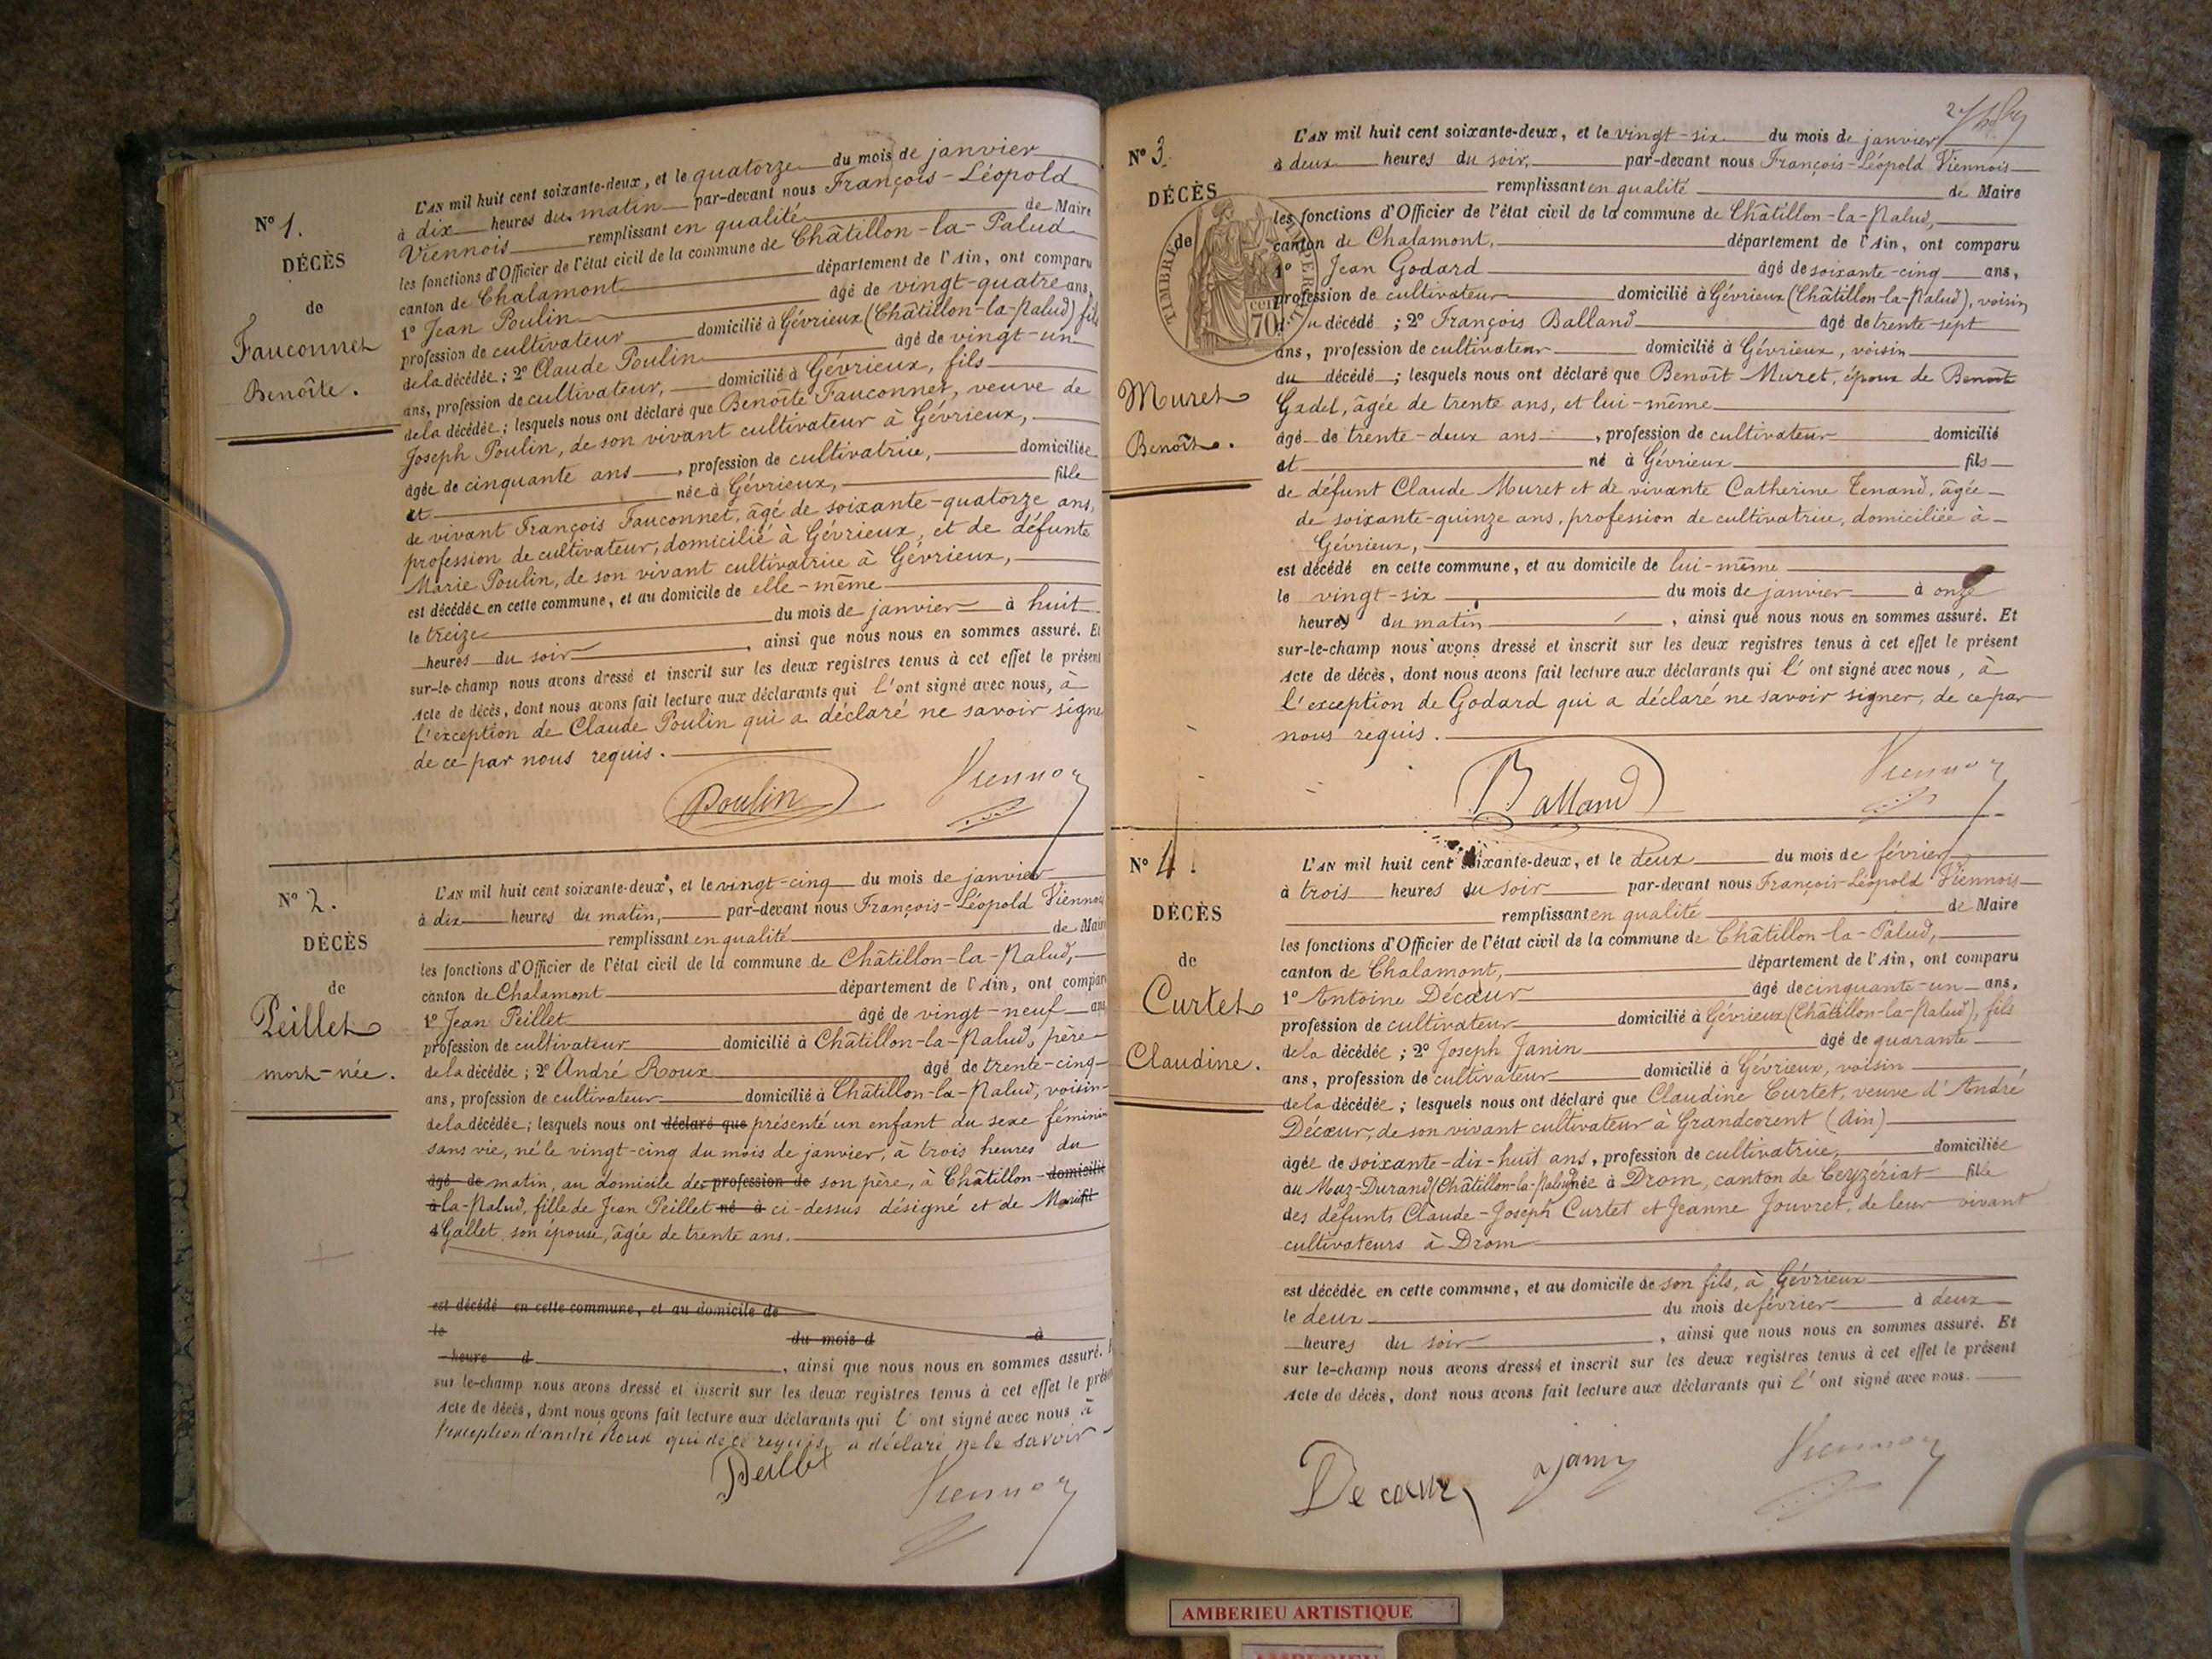 N° 1.
DÉCÈS
de
Fauconnet
Benoîte.
L'AN mil huit cent soixante-deux, et le quatorze du mois de janvier
à dix heures du matin par-devant nous François-Léopold
Viennois remplissant en qualité de Maire
les fonctions d'Officier de l'état civil de la commune de Châtillon-la-Palud
canton de Chalamont département de l'Ain, ont comparu
1° Jean Poulin âgé de vingt-quatre ans,
profession de cultivateur domicilié à Gévrieux (Châtillon-la-Palud) fils
de la décédée ; 2° Claude Poulin âgé de vingt-un
ans, profession de cultivateur, domicilié à Gévrieux, fils
de la décédée ; lesquels nous ont déclaré que Benoîte Fauconnet, veuve de
Joseph Poulin, de son vivant cultivateur à Gévrieux,
âgée de cinquante ans, profession de cultivatrice, domiciliée
et née à Gévrieux, fille
de vivant François Fauconnet, âgé de soixante-quatorze ans,
profession de cultivateur, domicilié à Gévrieux, et de défunte
Marie Poulin, de son vivant cultivatrice à Gévrieux,
est décédée en cette commune, et au domicile de elle-même
le treize du mois de janvier à huit
heures du soir, ainsi que nous nous en sommes assuré. Et
sur-le-champ nous avons dressé et inscrit sur les deux registres tenus à cet effet le présent
Acte de décès, dont nous avons fait lecture aux déclarants qui l'ont signé avec nous, à
l'exception de Claude Poulin qui a déclaré ne savoir signe
de ce par nous requis.
Poulin Viennois
N° 2.
DÉCÈS
de
Peillet
mort-née.
L'AN mil huit cent soixante-deux, et le vingt-cinq du mois de janvier
à dix heures du matin, par-devant nous François-Léopold Viennois
remplissant en qualité de Maire
les fonctions d'Officier de l'état civil de la commune de Châtillon-la-Palud,
canton de Chalamont département de l'Ain, ont comparu
1° Jean Peillet âgé de vingt-neuf ans
profession de cultivateur domicilié à Châtillon-la-Palud, père
de la décédée ; 2° André Roux âgé de trente-cinq
ans, profession de cultivateur domicilié à Châtillon-la-Palud, voisin
de la décédée ; lesquels nous ont déclaré que présenté un enfant du sexe féminin
sans vie, né le vingt-cinq du mois de janvier, à trois heures du
âgé de matin, au domicile de profession de son père, à Châtillon- domicilié
à la-Palud, fille de Jean Peillet né à ci-dessus désigné et de
Gallet, son épouse, âgée de trente ans.
est décédé en cette commune, et au domicile de
le du mois d à
heure d, ainsi que nous nous en sommes assuré.
sur le-champ nous avons dressé et inscrit sur les deux registres tenus à cet effet le présent
Acte de décès, dont nous avons fait lecture aux déclarants qui l'ont signé avec nous à
l'exception d'andré Roux qui de ce requis, a déclaré ne le savoir
Peillet Viennois
N° 3.
DÉCÈS
de
Muret
Benoît.
TIMBRE IMPERIAL
70
L'AN mil huit cent soixante-deux, et le vingt-six du mois de janvier
à deux heures du soir, par-devant nous François-Léopold Viennois
remplissant en qualité de Maire
les fonctions d'Officier de l'état civil de la commune de Châtillon-la-Palud,
canton de Chalamont, département de l'Ain, ont comparu
1° Jean Godard âgé de soixante-cinq ans,
profession de cultivateur domicilié à Gévrieux (Châtillon-la-Palud), voisin
du décédé ; 2° François Balland âgé de trente-sept
ans, profession de cultivateur domicilié à Gévrieux, voisin
du décédé ; lesquels nous ont déclaré que Benoît Muret, époux de Benoîte
Gadel, âgée de trente ans, et lui-même
âgé de trente-deux ans, profession de cultivateur domicilié
et né à Gévrieux fils
de défunt Claude Muret et de vivante Catherine Tenand, âgée
de soixante-quinze ans, profession de cultivatrice, domiciliée à
Gévrieux,
est décédé en cette commune, et au domicile de lui-même
le vingt-six du mois de janvier à onze
heures du matin, ainsi que nous nous en sommes assuré. Et
sur-le-champ nous avons dressé et inscrit sur les deux registres tenus à cet effet le présent
Acte de décès, dont nous avons fait lecture aux déclarants qui l'ont signé avec nous, à
l'exception de Godard qui a déclaré ne savoir signer, de ce par
nous requis.
Balland Viennois
N° 4.
DÉCÈS
de
Curtet
Claudine.
L'AN mil huit cent soixante-deux, et le deux du mois de février
à trois heures du soir par-devant nous François-Léopold Viennois
remplissant en qualité de Maire
les fonctions d'Officier de l'état civil de la commune de Châtillon-la-Palud,
canton de Chalamont, département de l'Ain, ont comparu
1° Antoine Décœur âgé de cinquante-un ans,
profession de cultivateur domicilié à Gévrieux (Châtillon-la-Palud), fils
de la décédée ; 2° Joseph Janin âgé de quarante
ans, profession de cultivateur domicilié à Gévrieux, voisin
de la décédée ; lesquels nous ont déclaré que Claudine Curtet, veuve d'André
Décœur, de son vivant cultivateur à Grandcorent (Ain)
âgée de soixante-dix-huit ans, profession de cultivatrice, domiciliée
au Maz-Durand (Châtillon-la-Palud) née à Drom, canton de Ceyzériat fille
des défunts Claude-Joseph Curtet et Jeanne Jouvret, de leur vivant
cultivateurs à Drom
est décédée en cette commune, et au domicile de son fils, à Gévrieux
le deux du mois de février à deux
heures du soir, ainsi que nous nous en sommes assuré. Et
sur le-champ nous avons dressé et inscrit sur les deux registres tenus à cet effet le présent
Acte de décès, dont nous avons fait lecture aux déclarants qui l'ont signé avec nous.
De cœur Janin Viennois
AMBERIEU ARTISTIQUE
AMBERIEU